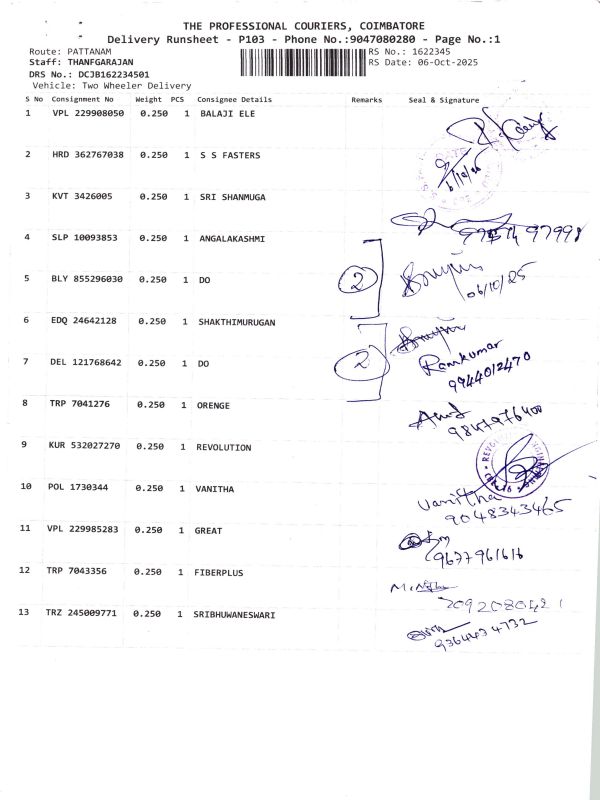 THE PROFESSIONAL COURIERS, COIMBATORE
Delivery Runsheet - P103 - Phone No.:9047080280 - Page No.:1
Route: PATTANAM RS No.: 1622345
Staff: THANFGARAJAN RS Date: 06-Oct-2025
DRS No.: DCJB162234501
Vehicle: Two Wheeler Delivery
S No Consignment No Weight PCS Consignee Details Remarks Seal & Signature
1 VPL 229908050 0.250 1 BALAJI ELE
2 HRD 362767038 0.250 1 S S FASTERS
6/10/25
3 KVT 3426005 0.250 1 SRI SHANMUGA
4 SLP 10093853 0.250 1 ANGALAKSHMI
5 BLY 855296030 0.250 1 DO 2
06/10/25
6 EDQ 24642128 0.250 1 SHAKTHIMURUGAN
Ramkumar
7 DEL 121768642 0.250 1 DO 2
9944012470
8 TRP 7041276 0.250 1 ORENGE
9847976400
9 KUR 532027270 0.250 1 REVOLUTION
10 POL 1730344 0.250 1 VANITHA Vanitha
9048343465
11 VPL 229985283 0.250 1 GREAT
9677961616
12 TRP 7043356 0.250 1 FIBERPLUS
13 TRZ 245009771 0.250 1 SRIBHUWANESWARI
9364434732